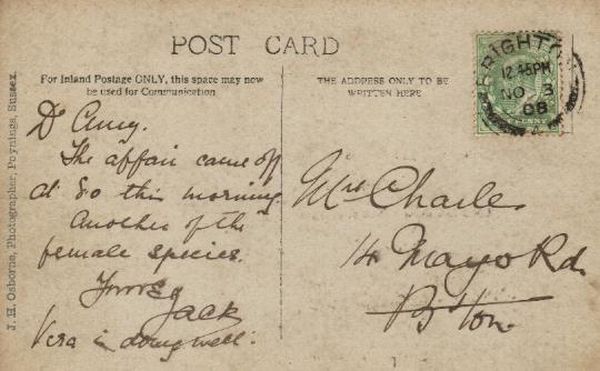 POST CARD
For Inland Postage ONLY, this space may now
be used for Communication
THE ADDRESS ONLY TO BE
WRITTEN HERE
J. H. Osborne, Photographer, Poynings, Sussex.
BRIGHTO
12.45PM
NO 3
08
PENNY
Dr Amy.
The affair came off
at 8o this morning
Another of the
female species.
Yours
Jack
Vera is doing well.
Mrs Charles
14 Mayo Rd.
B'ton